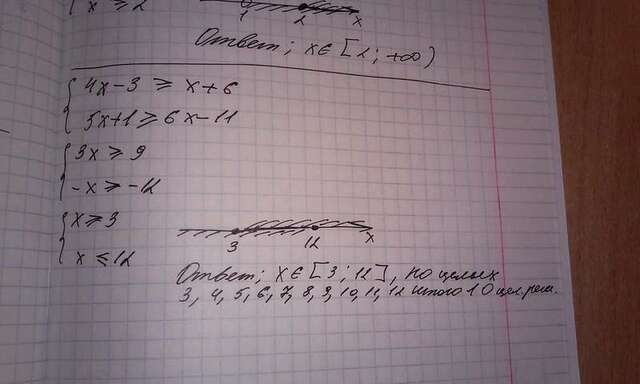 x ≥ 2
1 2 x
Ответ; x ∈ [2; +∞)
4x-3 ≥ x+6
5x+1 ≥ 6x-11
3x ≥ 9
-x ≥ -12
x ≥ 3
x ≤ 12
3 12 x
Ответ; x ∈ [3; 12], но целых
3, 4, 5, 6, 7, 8, 9, 10, 11, 12 итого 10 цел. реш.